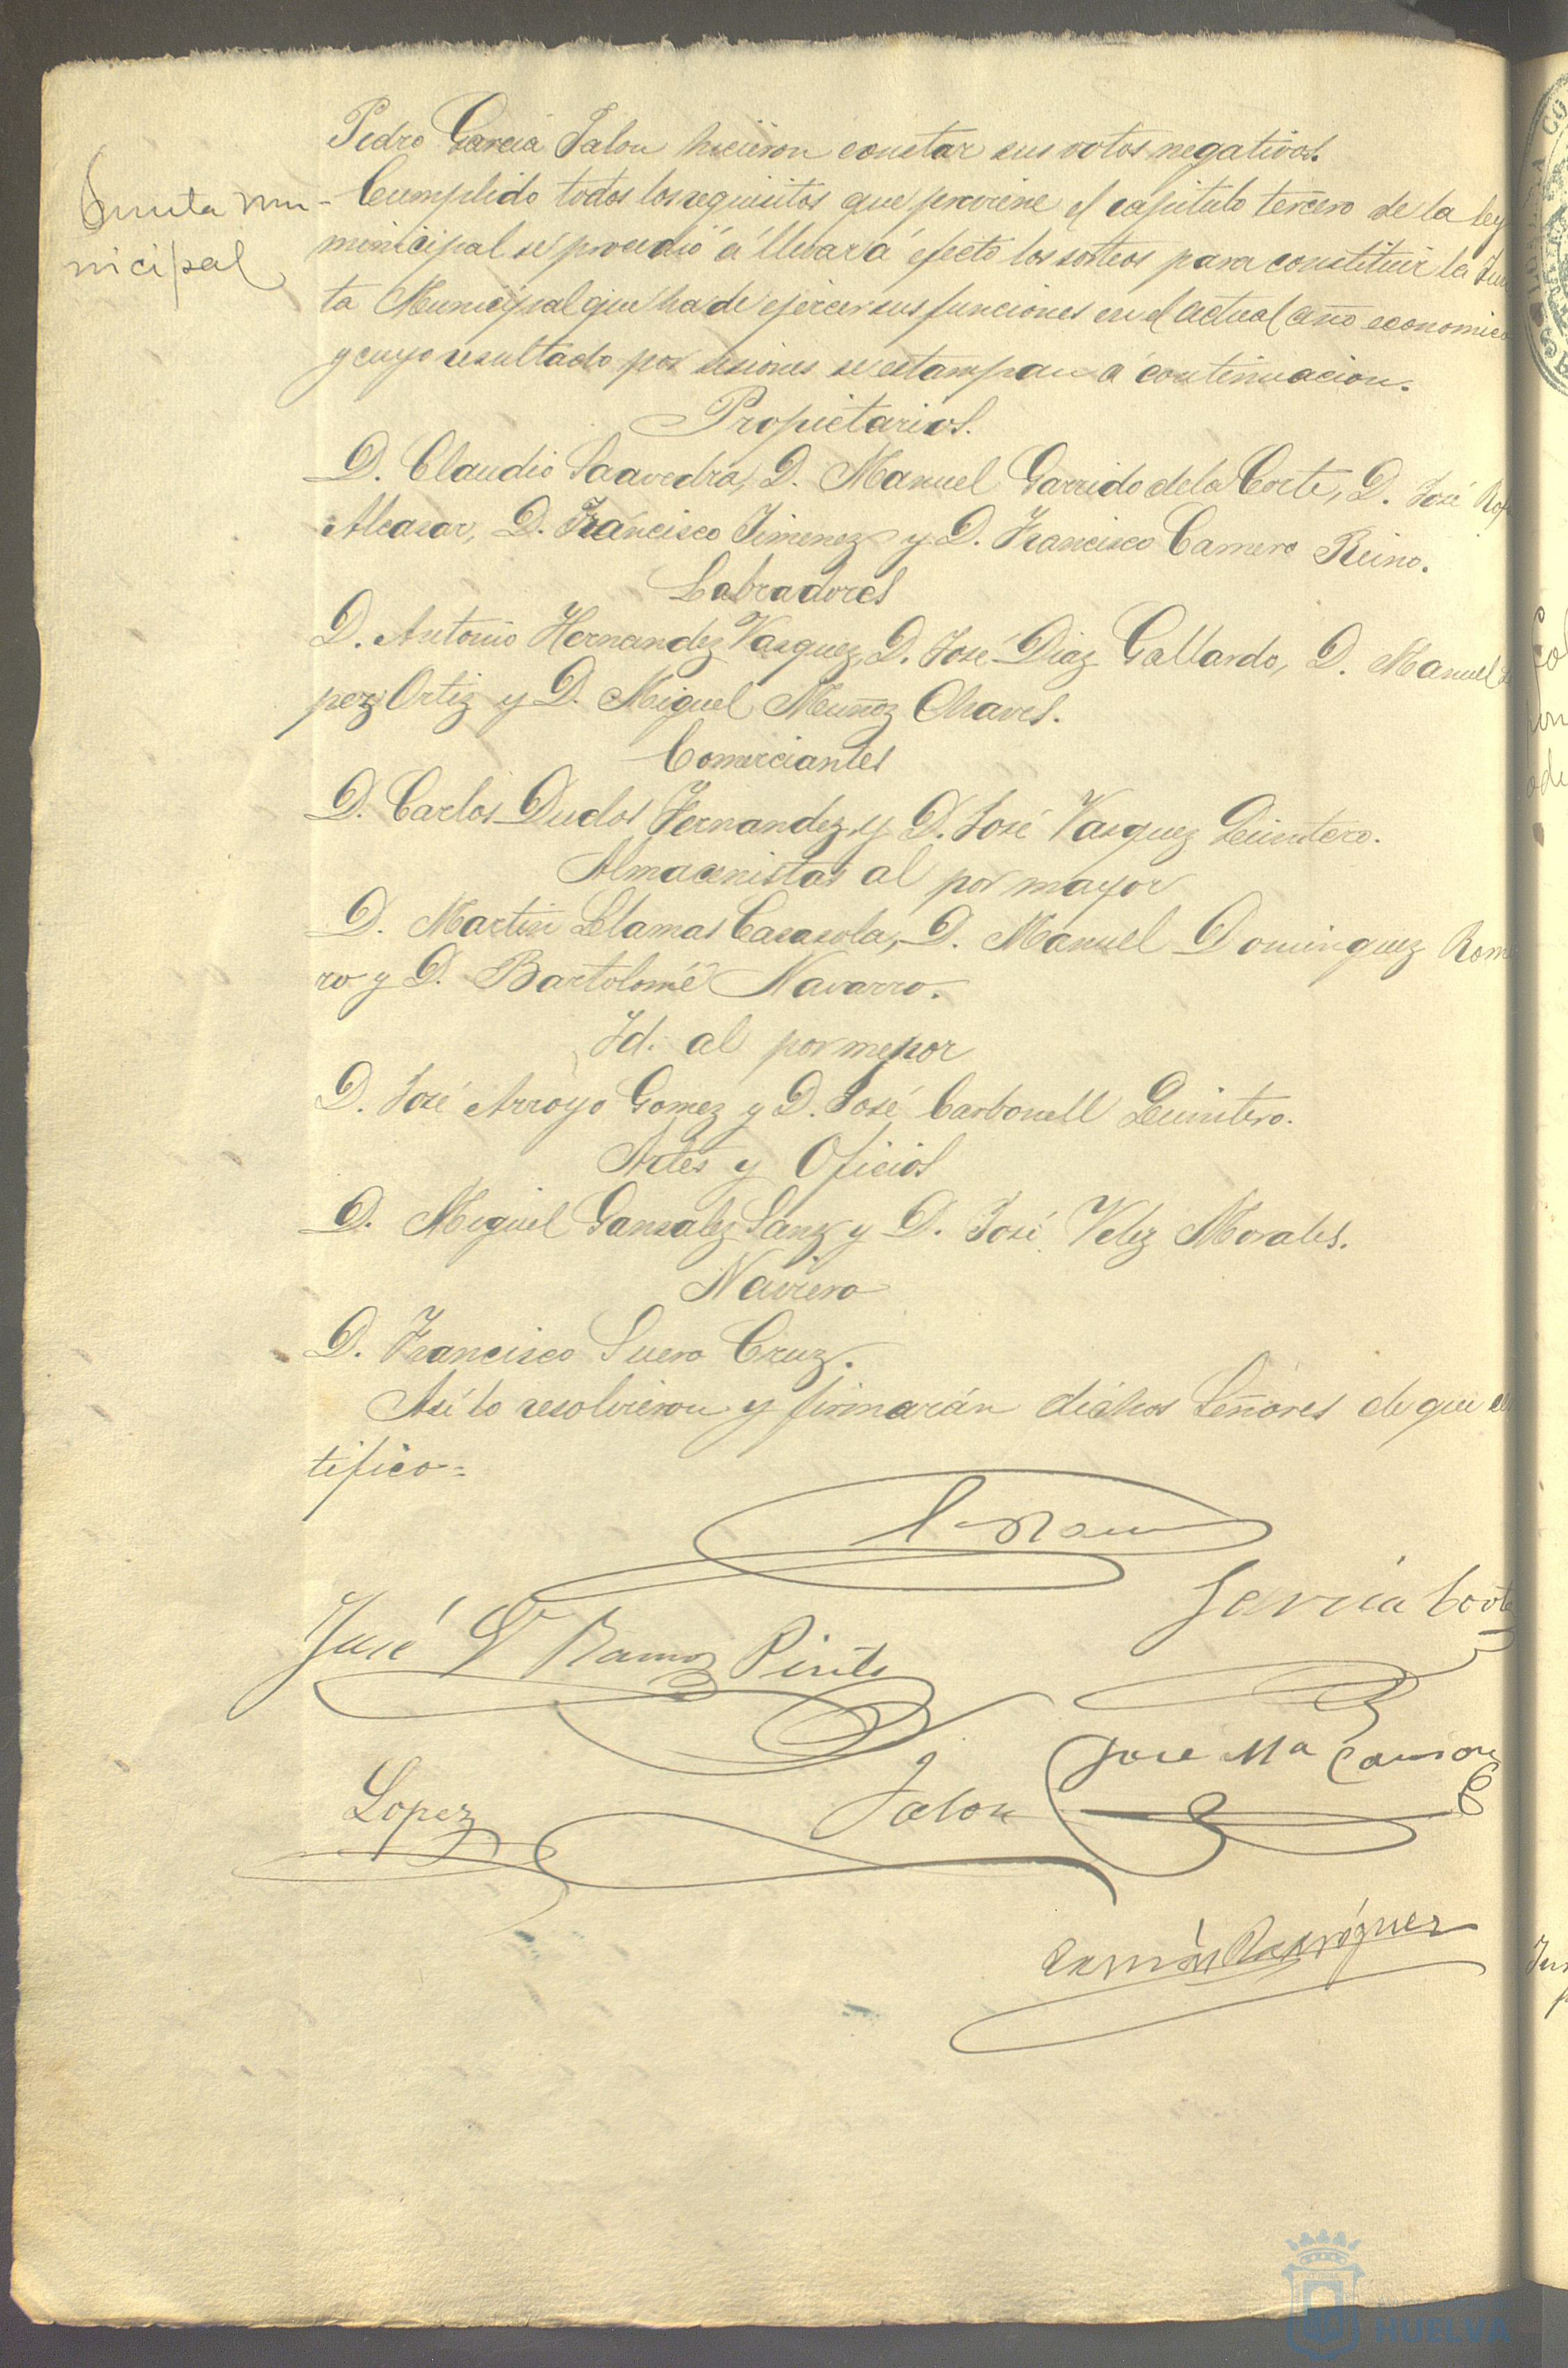 Pedro García Jalon hicieron constar sus votos negativos.
Junta mu-
nicipal
Cumplido todos los requisitos que previene el capitulo tercero de la ley
municipal se procedió á llevar á efecto los sorteos para constituir la Jun
ta Municipal que ha de ejercer sus funciones en el actual año economico
y cuyo resultado por sesiones se estampan á continuacion.
Propietarios.
D. Claudio Saavedra, D. Manuel Garrido de la Corte, D. José
Alcasar, D. Francisco Jimenez y D. Francisco Camero Reino.
Labradores
D. Antonio Hernandez Vasquez, D. José Diaz Gallardo, D. Manuel
pez Ortiz y D. Miguel Muñoz Chaves.
Comerciantes
D. Carlos Duclos Fernandez y D. José Vasquez Quintero.
Almacenistas al por mayor
D. Martin Llamas Casasola, D. Manuel Dominguez Rome
ro y D. Bartolomé Navarro.
Id. al por menor
D. José Arroyo Gomez y D. José Carbonell Quintero.
Artes y Oficios
D. Miguel Gonsalez Sanz y D. José Velez Morales.
Naviero
D. Francisco Suero Cruz.
Así lo resolvieron y firmarán dichos Señores de que cer
tifico=
García Corte
José Ramos Pinto
Jose Ma
Lopez
Jalon
Ramón Rodríguez
HUELVA